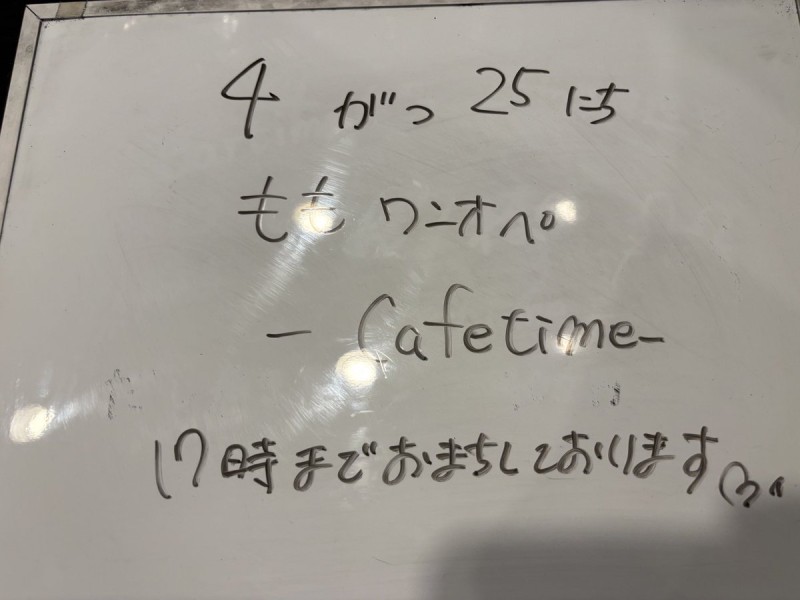 4 がつ 25 にち
もも ワンオペ
- Cafetime-
17時までおまちしております